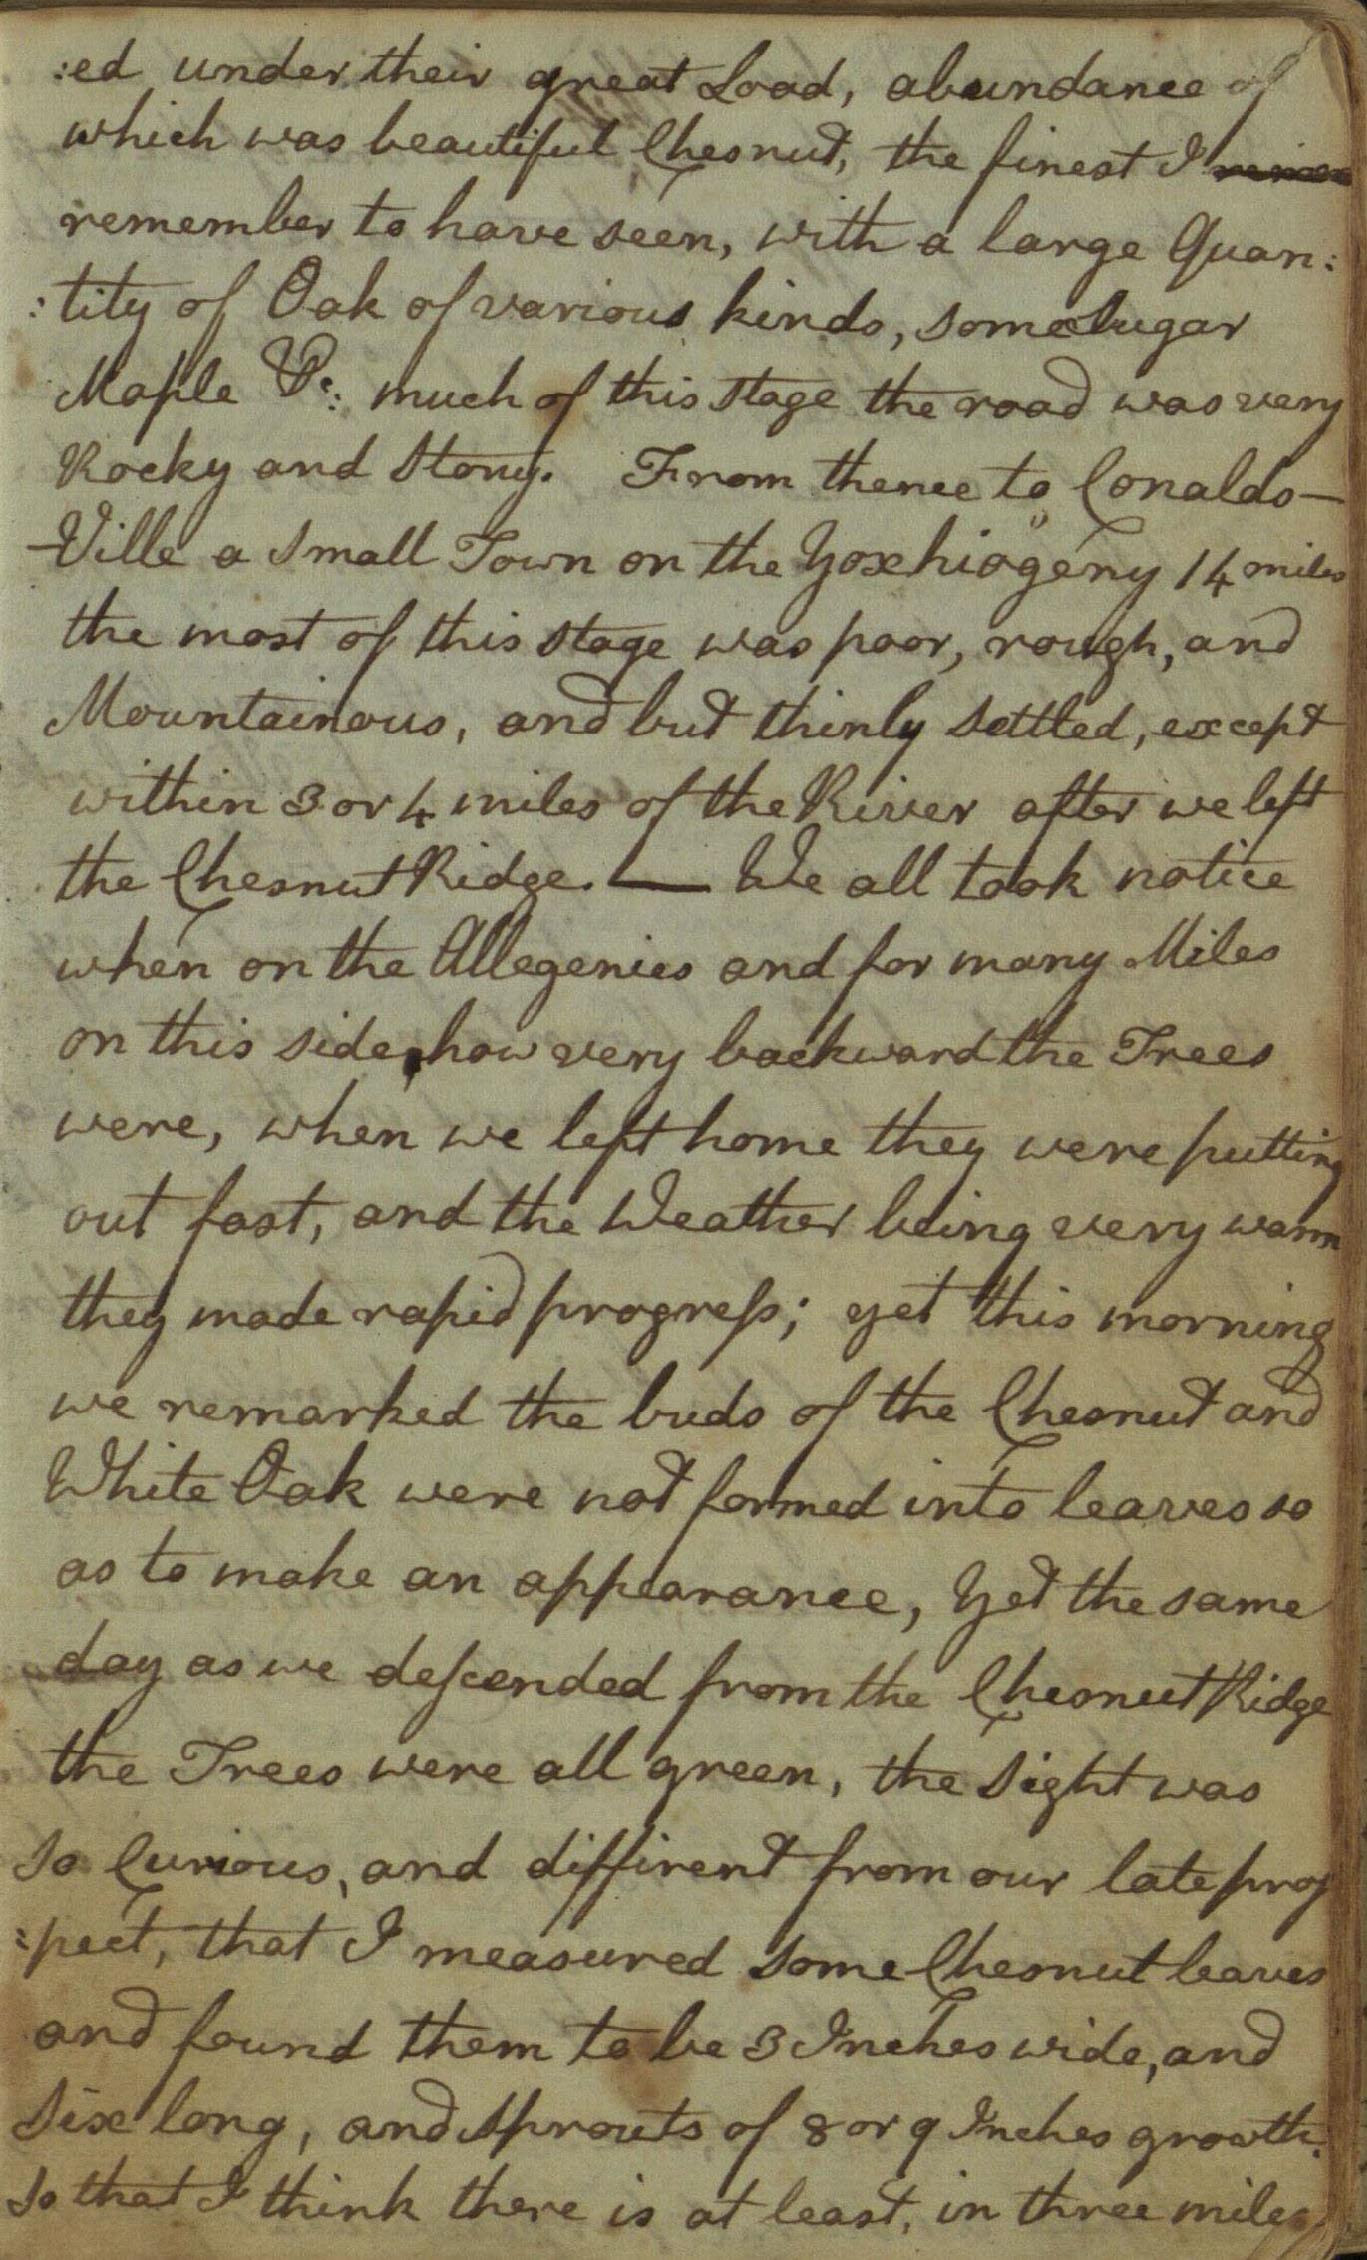 :ed under their great Load, abundance of
which was beautiful Chesnut, the finest I
remember to have seen, with a large Quan:
:tity of Oak of various kinds, some Sugar
Maple &c: much of this Stage the road was very
Rocky and Stony. From thence to Conalds-
-Ville a Small Town on the Yoxhiogeny 14 miles
the most of this Stage was poor, rough, and
Mountainous, and but thinly Settled, except
within 3 or 4 miles of the River after we left
the Chesnut Ridge. — We all took notice
when on the Allegenies and for many Miles
on this side, how very backward the Trees
were, when we left home they were putting
out fast, and the Weather being very warm
they made rapid progreſs; yet this morning
we remarked the buds of the Chesnut and
White Oak were not formed into leaves so
as to make an appearance, Yet the same
day as we deſcended from the Chesnut Ridge
the Trees were all green, the Sight was
So Curious, and diffirent from our late proſ
:pect, that I measured Some Chesnut leaves
and found them to be 3 Inches wide, and
Six long, and Sprouts of 8 or 9 Inches growth.
So that I think there is at least, in three miles